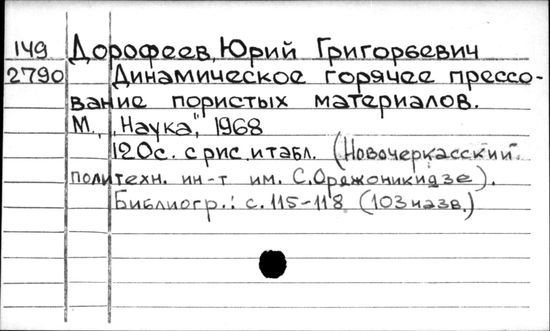 149 Дорофеев, Юрий Григорьевич
2790 Динамическое горячее прессо-
вание пористых материалов.
М., „Наука", 1968
120с. с рис. и табл. (Новочеркасский
политехн. ин-т им. С.Орджоникидзе).
Библиогр.: с. 115-118 (103 назв.)